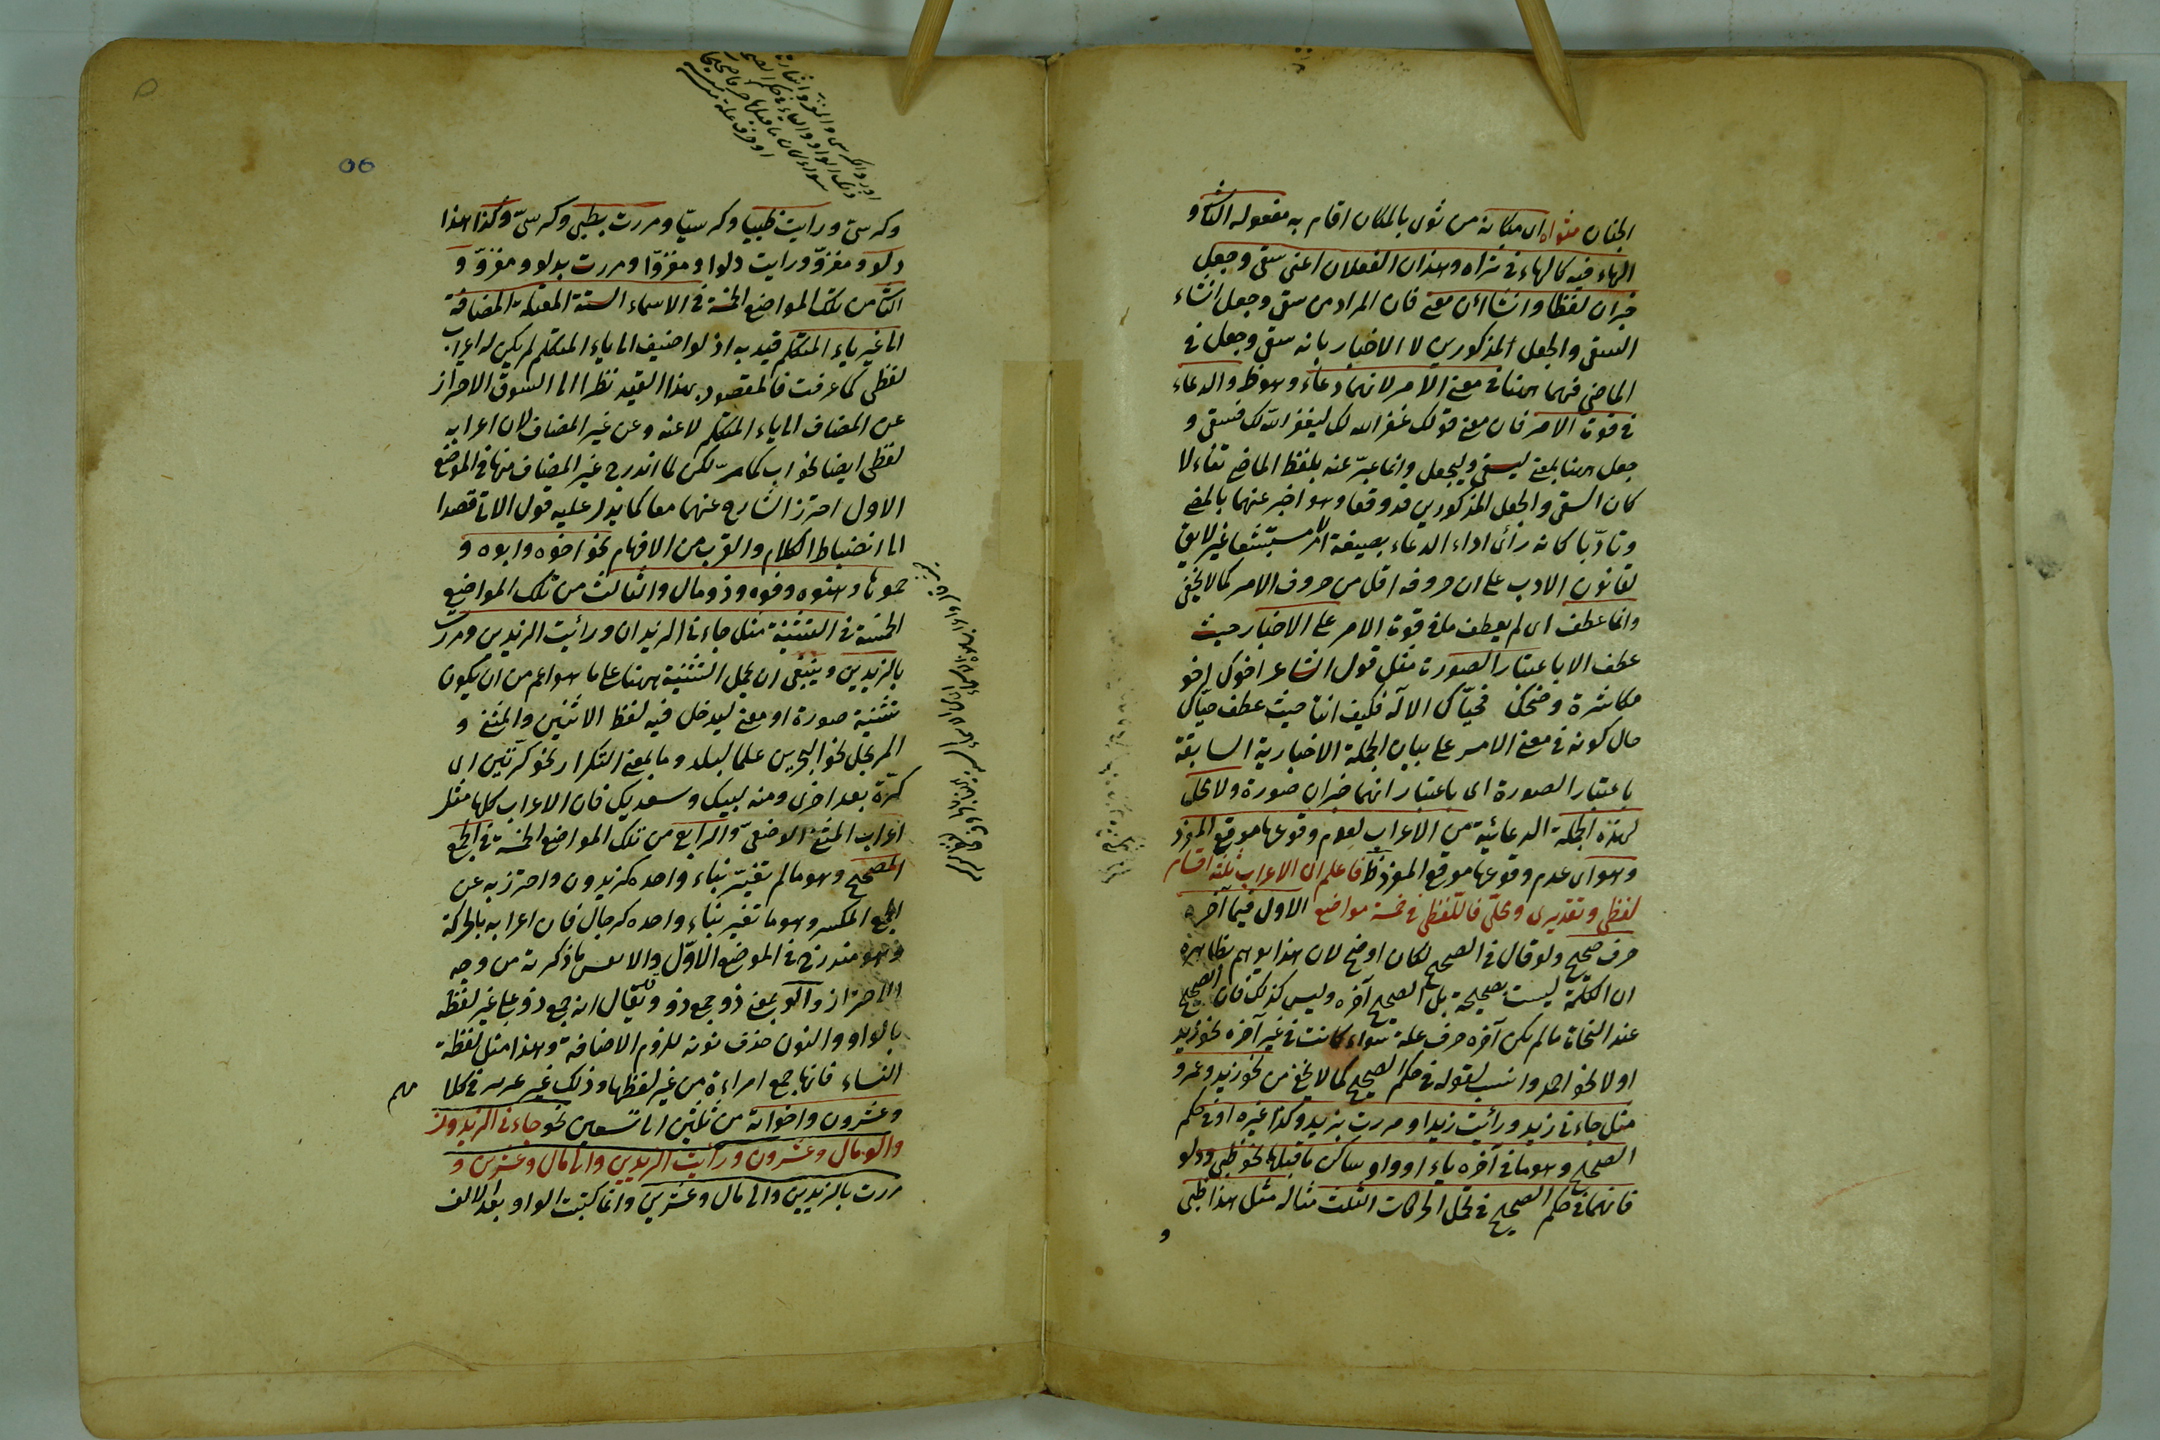 الجنان مثواه اى مكانه من ثوى بالمكان اقام به مفعوله الثانى و
الهاء فيه كالهاء فى ثراه وهذان الفعلان اعنى سقى وجعل
خبران لفظا وانشاءان معنى فان المراد من سقى وجعل انشاء
السقى والجعل المذكورين لا الاخبار بانه سقى وجعل فى
الماضى فهما ههنا فى معنى الامر لانهما دعاء وهو ظ والدعاء
فى قوة الامر فان معنى قولك غفر الله لك ليغفر الله لك فسقى و
جعل ههنا بمعنى ليسقى وليجعل وانما عبّر عنه بلفظ الماضى تفاءلا
كان السقى والجعل المذكورين قد وقعا وهو اخبر عنهما بالمضى
وتادّبا كانه رأى اداء الدعاء بصيغة الامر مستبشعا غير لايق
لقانون الادب على ان حروفه اقل من حروف الامر كما لا يخفى
وانما عطف اى لم يعطف ما فى قوة الامر على الاخبار حيث
عطف الا باعتبار الصورة مثل قول الشاعر اخوك اخو
مكاشرة وضحك فحيّاك الاله فكيف انتا حيث عطف حيّاك
حال كونه فى معنى الامر على بيان الجملة الاخبارية السابقة
باعتبار الصورة اى باعتبار انهما خبران صورة ولا محل
لهذه الجملة الدعائية من الاعراب لعدم وقوعها موقع المفرد
وهو اى عدم وقوعها موقع المفرد ظ فاعلم ان الاعراب ثلثة اقسام
لفظى وتقديرى ومحلّى فاللفظى فى خمسة مواضع الاول فيما آخره
حرف صحيح ولو قال فى الصحيح لكان اوضح لان هذا يوهم بظاهره
ان الكلمة ليست بصحيحة بل الصحيح آخره وليس كذلك فان الصحيح
عند النحاة ما لم يكن آخره حرف علة سواء كانت فى غير آخره نحو زيد
او لا نحو احمد وانسب لقوله فى حكم الصحيح كما لا يخفى من نحو زيد وعمرو
مثل جاءنى زيد ورأيت زيدا ومررت بزيد وكذا غيره او فى حكم
الصحيح وهو ما فى آخره ياء او واو ساكن ما قبلها نحو ظبى ودلو
فانهما فى حكم الصحيح فى تحمل الحركات الثلث مثاله مثل هذا ظبى
و
وكرسىّ ورايت ظبيا وكرسيّا ومررت بظبى وكرسىّ وكذا هذا
دلو ومغزوّ ورايت دلوا ومغزوّا ومررت بدلو ومغزوّ و
الثانى من تلك المواضع الخمسة فى الاسماء الستة المعتلة المضافة
الى غير ياء المتكلم قيد به اذ لو اضيف الى ياء المتكلم لم يكن له اعراب
لفظى كما عرفت فالمقصود بهذا القيد نظرا الى السوق الاحراز
عن المضاف الى ياء المتكلم لا عنه وعن غير المضاف لان اعرابه
لفظى ايضا نحو اب كما مرّ لكن لما اندرج غير المضاف منها فى الموضع
الاول احترز الشارح عنهما معا كما يدل عليه قول الاتى قصدا
الى انضباط الكلام والقرب من الافهام نحو اخوه وابوه و
حموها وهنوه وفوه وذو مال والثالث من تلك المواضع
الخمسة فى التثنية مثل جاءنى الزيدان ورأيت الزيدين ومررت
بالزيدين وينبغى ان يحمل التثنية ههنا على ما هو اعم من ان يكون
تثنية صورة او معنى ليدخل فيه لفظ الاثنين والمثنى و
المرتجل نحو البحرين علما لبلد وما بمعنى التكرار نحو كرّتين اى
كرّة بعد اخرى ومنه لبيك وسعديك فان الاعراب كلها مثل
اعراب المثنى الاوضعىّ والرابع من تلك المواضع الخمسة فى الجمع
المصحح وهو ما لم يتغيّر بناء واحده كزيدون واحترز به عن
الجمع المكسر وهو ما تغير بناء واحده كرجال فان اعرابه بالحركة
وهو مندرج فى الموضع الاوّل والا ليس ما ذكرته من وجه
الاحتراز والو بمعنى ذو جمع ذو وقد يقال انه جمع ذو على غير لفظه
بالواو والنون حذف نونه للزوم الاضافة وهذا مثل لفظة
النساء فانها جمع امراءة من غير لفظها وذلك غير عرسر فى كلا
مهم
وعشرون واخواته من ثلثين الى تسعين نحو جاءنى الزيدون
والو مال وعشرون ورأيت الزيدين والى مال وعشرين و
مررت بالزيدين والى مال وعشرين وانما كتبت الواو بعد الالف